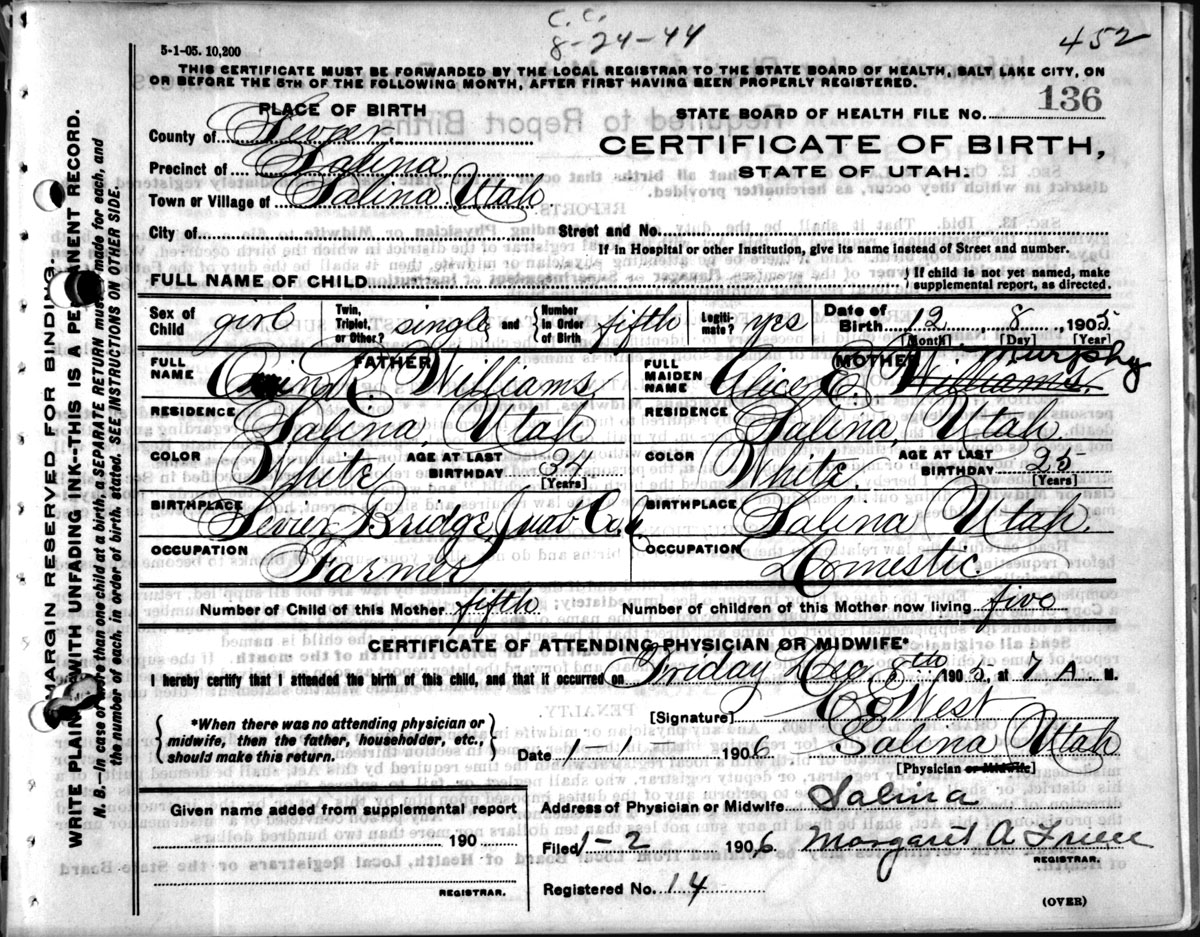 C. C.
8-24-44
452
5-1-05. 10,200
THIS CERTIFICATE MUST BE FORWARDED BY THE LOCAL REGISTRAR TO THE STATE BOARD OF HEALTH, SALT LAKE CITY, ON
OR BEFORE THE 5TH OF THE FOLLOWING MONTH, AFTER FIRST HAVING BEEN PROPERLY REGISTERED.
PLACE OF BIRTH
STATE BOARD OF HEALTH FILE No. 136
County of Sevier.
CERTIFICATE OF BIRTH,
Precinct of Salina
STATE OF UTAH.
Town or Village of Salina Utah
City of
Street and No.
If in Hospital or other Institution, give its name instead of Street and number.
FULL NAME OF CHILD
} If child is not yet named, make
supplemental report, as directed.
Sex of Child girl
Twin, Triplet, or Other? single and { Number in Order of Birth fifth
Legitimate? yes
Date of Birth 12, 8, 1905
[Month] [Day] [Year]
FATHER
FULL NAME Williams
MOTHER
FULL MAIDEN NAME Alice E. Williams. Murphy
RESIDENCE Salina, Utah
RESIDENCE Salina, Utah
COLOR White AGE AT LAST BIRTHDAY 34 [Years]
COLOR White. AGE AT LAST BIRTHDAY 25 [Years]
BIRTHPLACE Sevier Bridge, Juab Co.
BIRTHPLACE Salina Utah.
OCCUPATION Farmer
OCCUPATION Domestic
Number of Child of this Mother fifth
Number of children of this Mother now living five
CERTIFICATE OF ATTENDING PHYSICIAN OR MIDWIFE*
I hereby certify that I attended the birth of this child, and that it occurred on Friday Dec 8th 1905, at 7 A. M.
{ *When there was no attending physician or
midwife, then the father, householder, etc.,
should make this return. }
[Signature] West
Date 1-1 1906 Salina Utah
[Physician or Midwife]
Given name added from supplemental report
190
REGISTRAR.
Address of Physician or Midwife Salina
Filed 1-2 1906. Margaret A
REGISTRAR.
Registered No. 14
(OVER)
MARGIN RESERVED FOR BINDING.
WRITE PLAINLY WITH UNFADING INK--THIS IS A PERMANENT RECORD.
N. B.--In case of more than one child at a birth, a SEPARATE RETURN must be made for each, and
the number of each, in order of birth, stated. SEE INSTRUCTIONS ON OTHER SIDE.